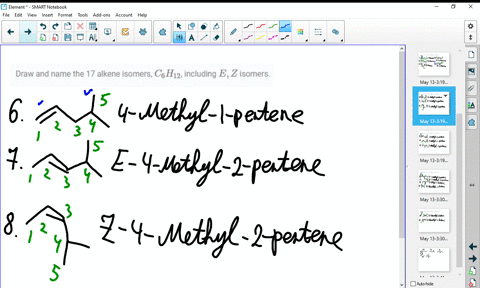 Element * - SMART Notebook
File Edit View Insert Format Tools Add-ons Help
Draw and name the 17 alkene isomers, C₆H₁₂, including E, Z isomers.
6. 1 2 3 4 5 4-Methyl-1-pentene
7. 1 2 3 4 5 E-4-Methyl-2-pentene
8. 1 2 3 4 5 Z-4-Methyl-2-pentene
May 13-3:19...
May 13-3:19...
May 13-3:30...
May 13-3:30...
Auto-hide